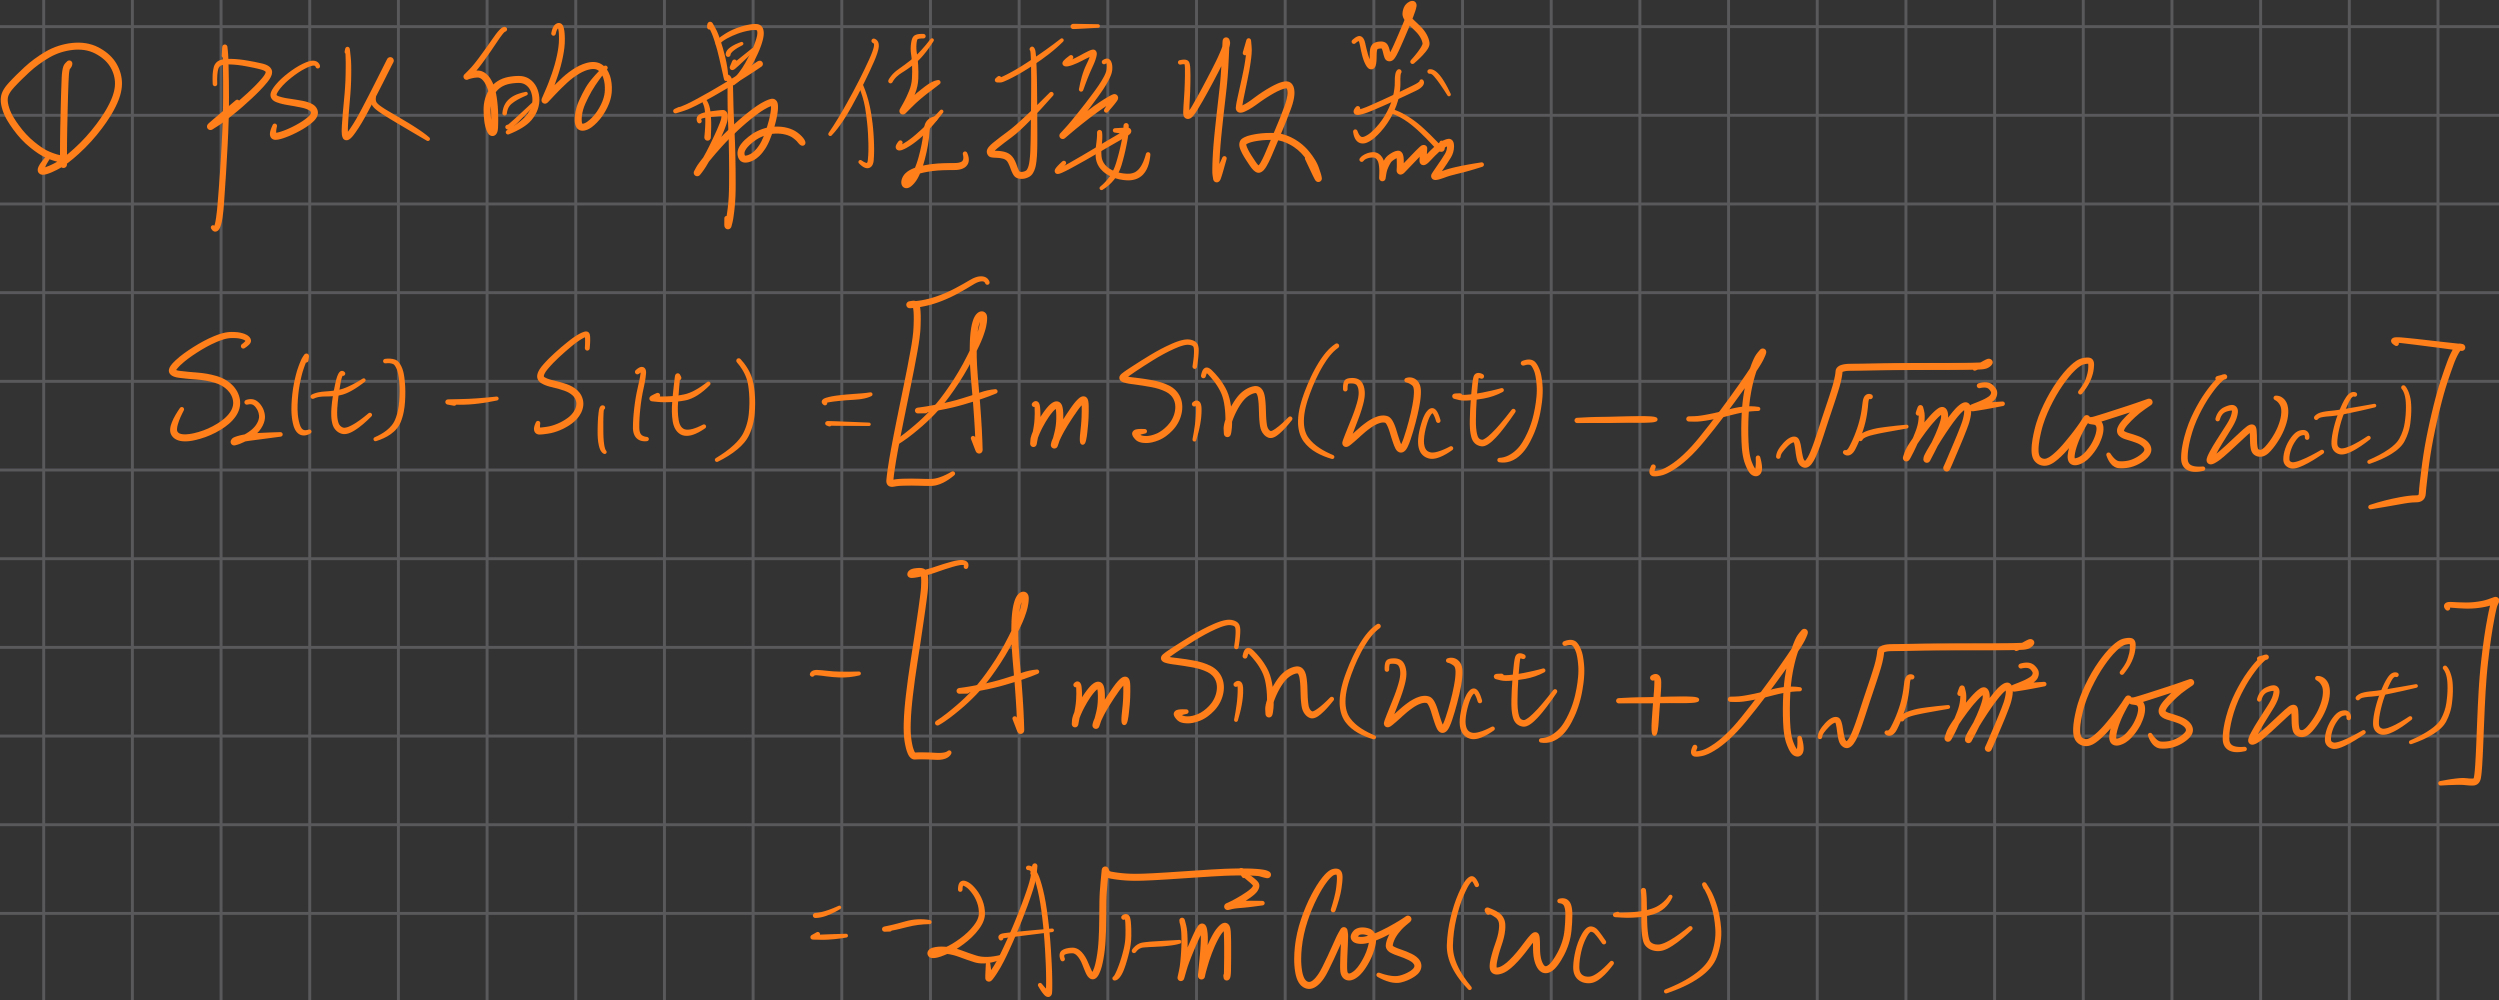 ① 的 收器
S₂(t) - S₁(t) = [Am Sin(wct) - A√(1-m²) Cos(wct)]
- [Am Sin(wct) + A√(1-m²) Cos(wct)]
= -2A√(1-m²) Cos(wct)